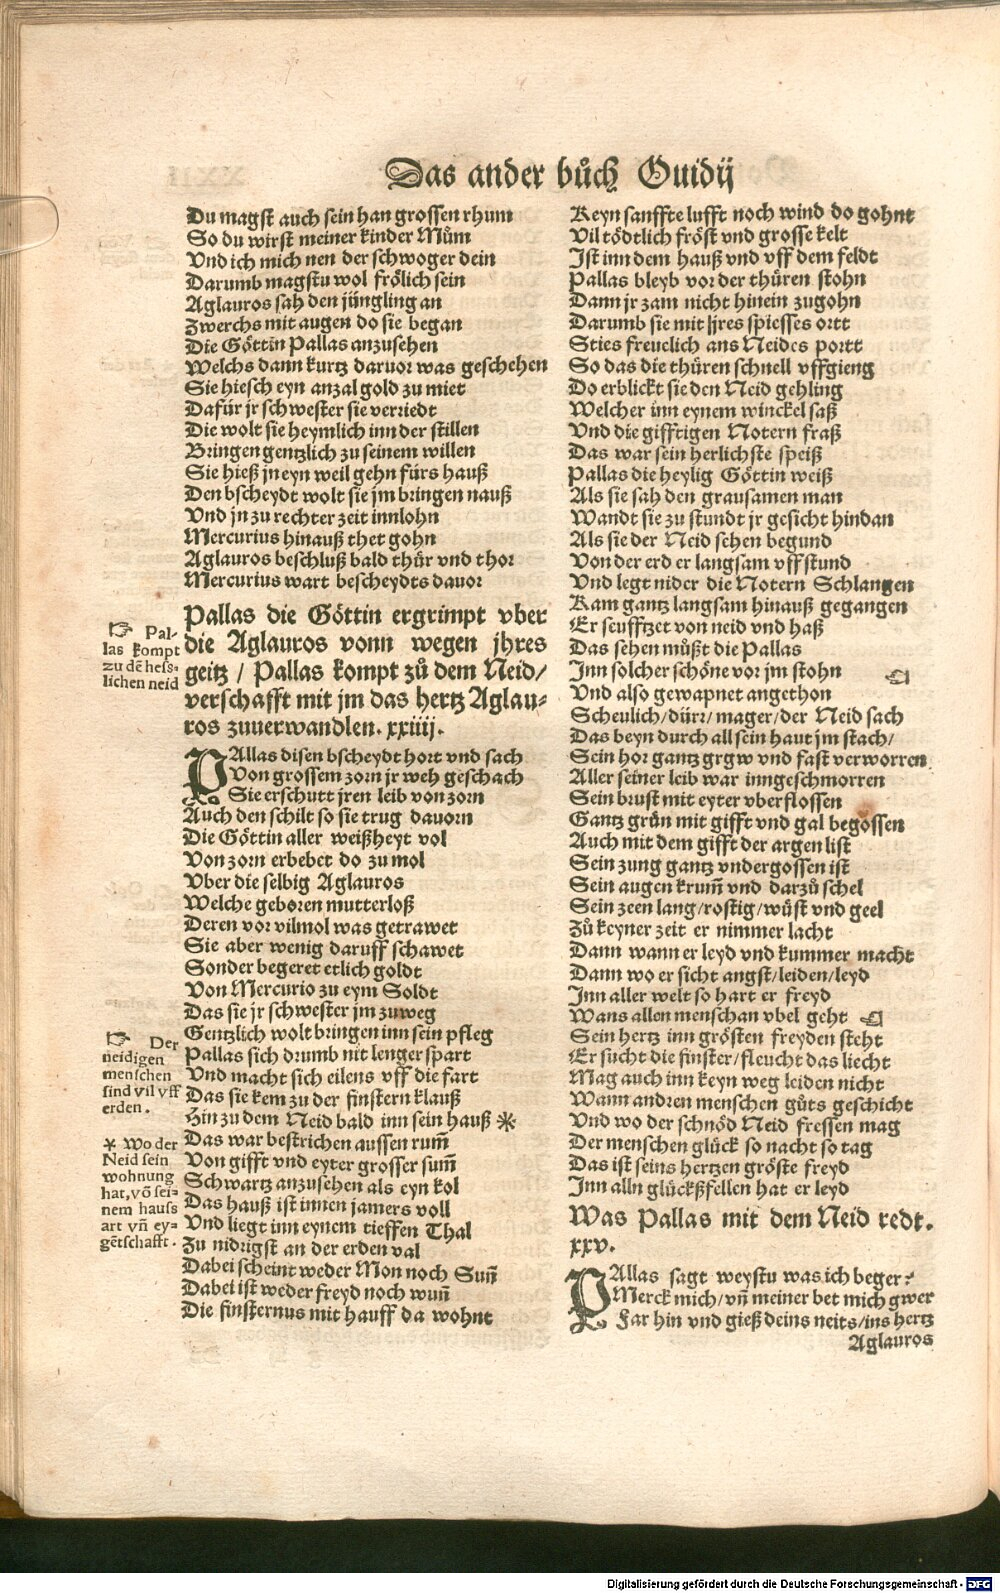 Das ander bůch Ouidij
Du magst auch sein han grossen rhum
So du wirst meiner kinder Mům
Vnd ich mich nen der schwoger dein
Darumb magstu wol frölich sein
Aglauros sah den jüngling an
Zwerchs mit augen do sie began
Die Göttin Pallas anzusehen
Welchs dann kurtz daruor was geschehen
Sie hiesch eyn anzal gold zu miet
Dafür jr schwester sie verriedt
Die wolt sie heymlich inn der stillen
Bringen gentzlich zu seinem willen
Sie hieß jn eyn weil gehn fürs hauß
Den bscheydt wolt sie jm bringen nauß
Vnd jn zu rechter zeit innlohn
Mercurius hinauß thet gohn
Aglauros beschluß bald thür vnd thor
Mercurius wart bescheydts dauor
Pallas die Göttin ergrimpt vber
die Aglauros vonn wegen jhres
geitz / Pallas kompt zů dem Neid/
verschafft mit jm das hertz Aglau-
ros zuuerwandlen. xxiiij.
☞ Pal-
las kompt
zu dē hess-
lichen neid
PAllas disen bscheydt hort vnd sach
Von grossem zorn jr weh geschach
Sie erschutt jren leib von zorn
Auch den schilt so sie trug dauorn
Die Göttin aller weißheyt vol
Von zorn erbebet do zu mol
Vber die selbig Aglauros
Welche geboren mutterloß
Deren vor vilmol was getrawet
Sie aber wenig daruff schawet
Sonder begeret etlich goldt
Von Mercurio zu eym Soldt
Das sie jr schwester jm zuweg
Gentzlich wolt bringen inn sein pfleg
Pallas sich drumb nit lenger spart
Vnd macht sich eilens vff die fart
Das sie kem zu der finstern klauß
Hin zu dem Neid bald inn sein hauß *
Das war bestrichen aussen rum̄
Von gifft vnd eyter grosser sum̄
Schwartz anzusehen als eyn kol
Das hauß ist innen jamers voll
Vnd liegt inn eynem tieffen Thal
Zu nidrigst an der erden val
Dabei scheint weder Mon noch Sun̄
Dabei ist weder freyd noch wun̄
Die finsternus mit hauff da wohnt
☞ Der
neidigen
menschen
sind vil vff
erden.
* Wo der
Neid sein
wohnung
hat, vō sei-
nem hauss
art vn̄ ey-
gētschafft.
Keyn sanffte lufft noch wind do gohnt
Vil tödtlich fröst vnd grosse kelt
Ist inn dem hauß vnd vff dem feldt
Pallas bleyb vor der thüren stohn
Dann jr zam nicht hinein zugohn
Darumb sie mit jres spiesses ortt
Sties freuelich ans Neides portt
So das die thüren schnell vffgieng
Do erblickt sie den Neid gehling
Welcher inn eynem winckel saß
Vnd die gifftigen Notern fraß
Das war sein herlichste speiß
Pallas die heylig Göttin weiß
Als sie sah den grausamen man
Wandt sie zu stundt jr gesicht hindan
Als sie der Neid sehen begund
Von der erd er langsam vffstund
Vnd legt nider die Notern Schlangen
Kam gantz langsam hinauß gegangen
Er seufftzet von neid vnd haß
Das sehen můßt die Pallas
Inn solcher schöne vor jm stohn
Vnd also gewapnet angethon
Scheulich/dürr/mager/der Neid sach
Das beyn durch all sein haut jm stach/
Sein hor gantz grgw vnd fast verworren
Aller seiner leib war inngeschmorren
Sein brust mit eyter vberflossen
Gantz grün mit gifft vnd gal begossen
Auch mit dem gifft der argen list
Sein zung gantz vndergossen ist
Sein augen krum̄ vnd darzů schel
Sein zeen lang/rostig/wüst vnd geel
Zů keyner zeit er nimmer lacht
Dann wann er leyd vnd kummer macht
Dann wo er sicht angst/leiden/leyd
Inn aller welt so hart er freyd
Wans allen menschan vbel geht ☜
Sein hertz inn grösten freyden steht
Er sucht die finster/fleucht das liecht
Mag auch inn keyn weg leiden nicht
Wann andren menschen gůts geschicht
Vnd wo der schnöd Neid fressen mag
Der menschen glück so nacht so tag
Das ist seins hertzen gröste freyd
Inn alln glückßfellen hat er leyd
Was Pallas mit dem Neid redt.
xxv.
PAllas sagt weystu was ich beger?
Merck mich/vn̄ meiner bet mich gwer
Far hin vnd gieß deins neits/ins hertz
Aglauros
Digitalisierung gefördert durch die Deutsche Forschungsgemeinschaft - DFG